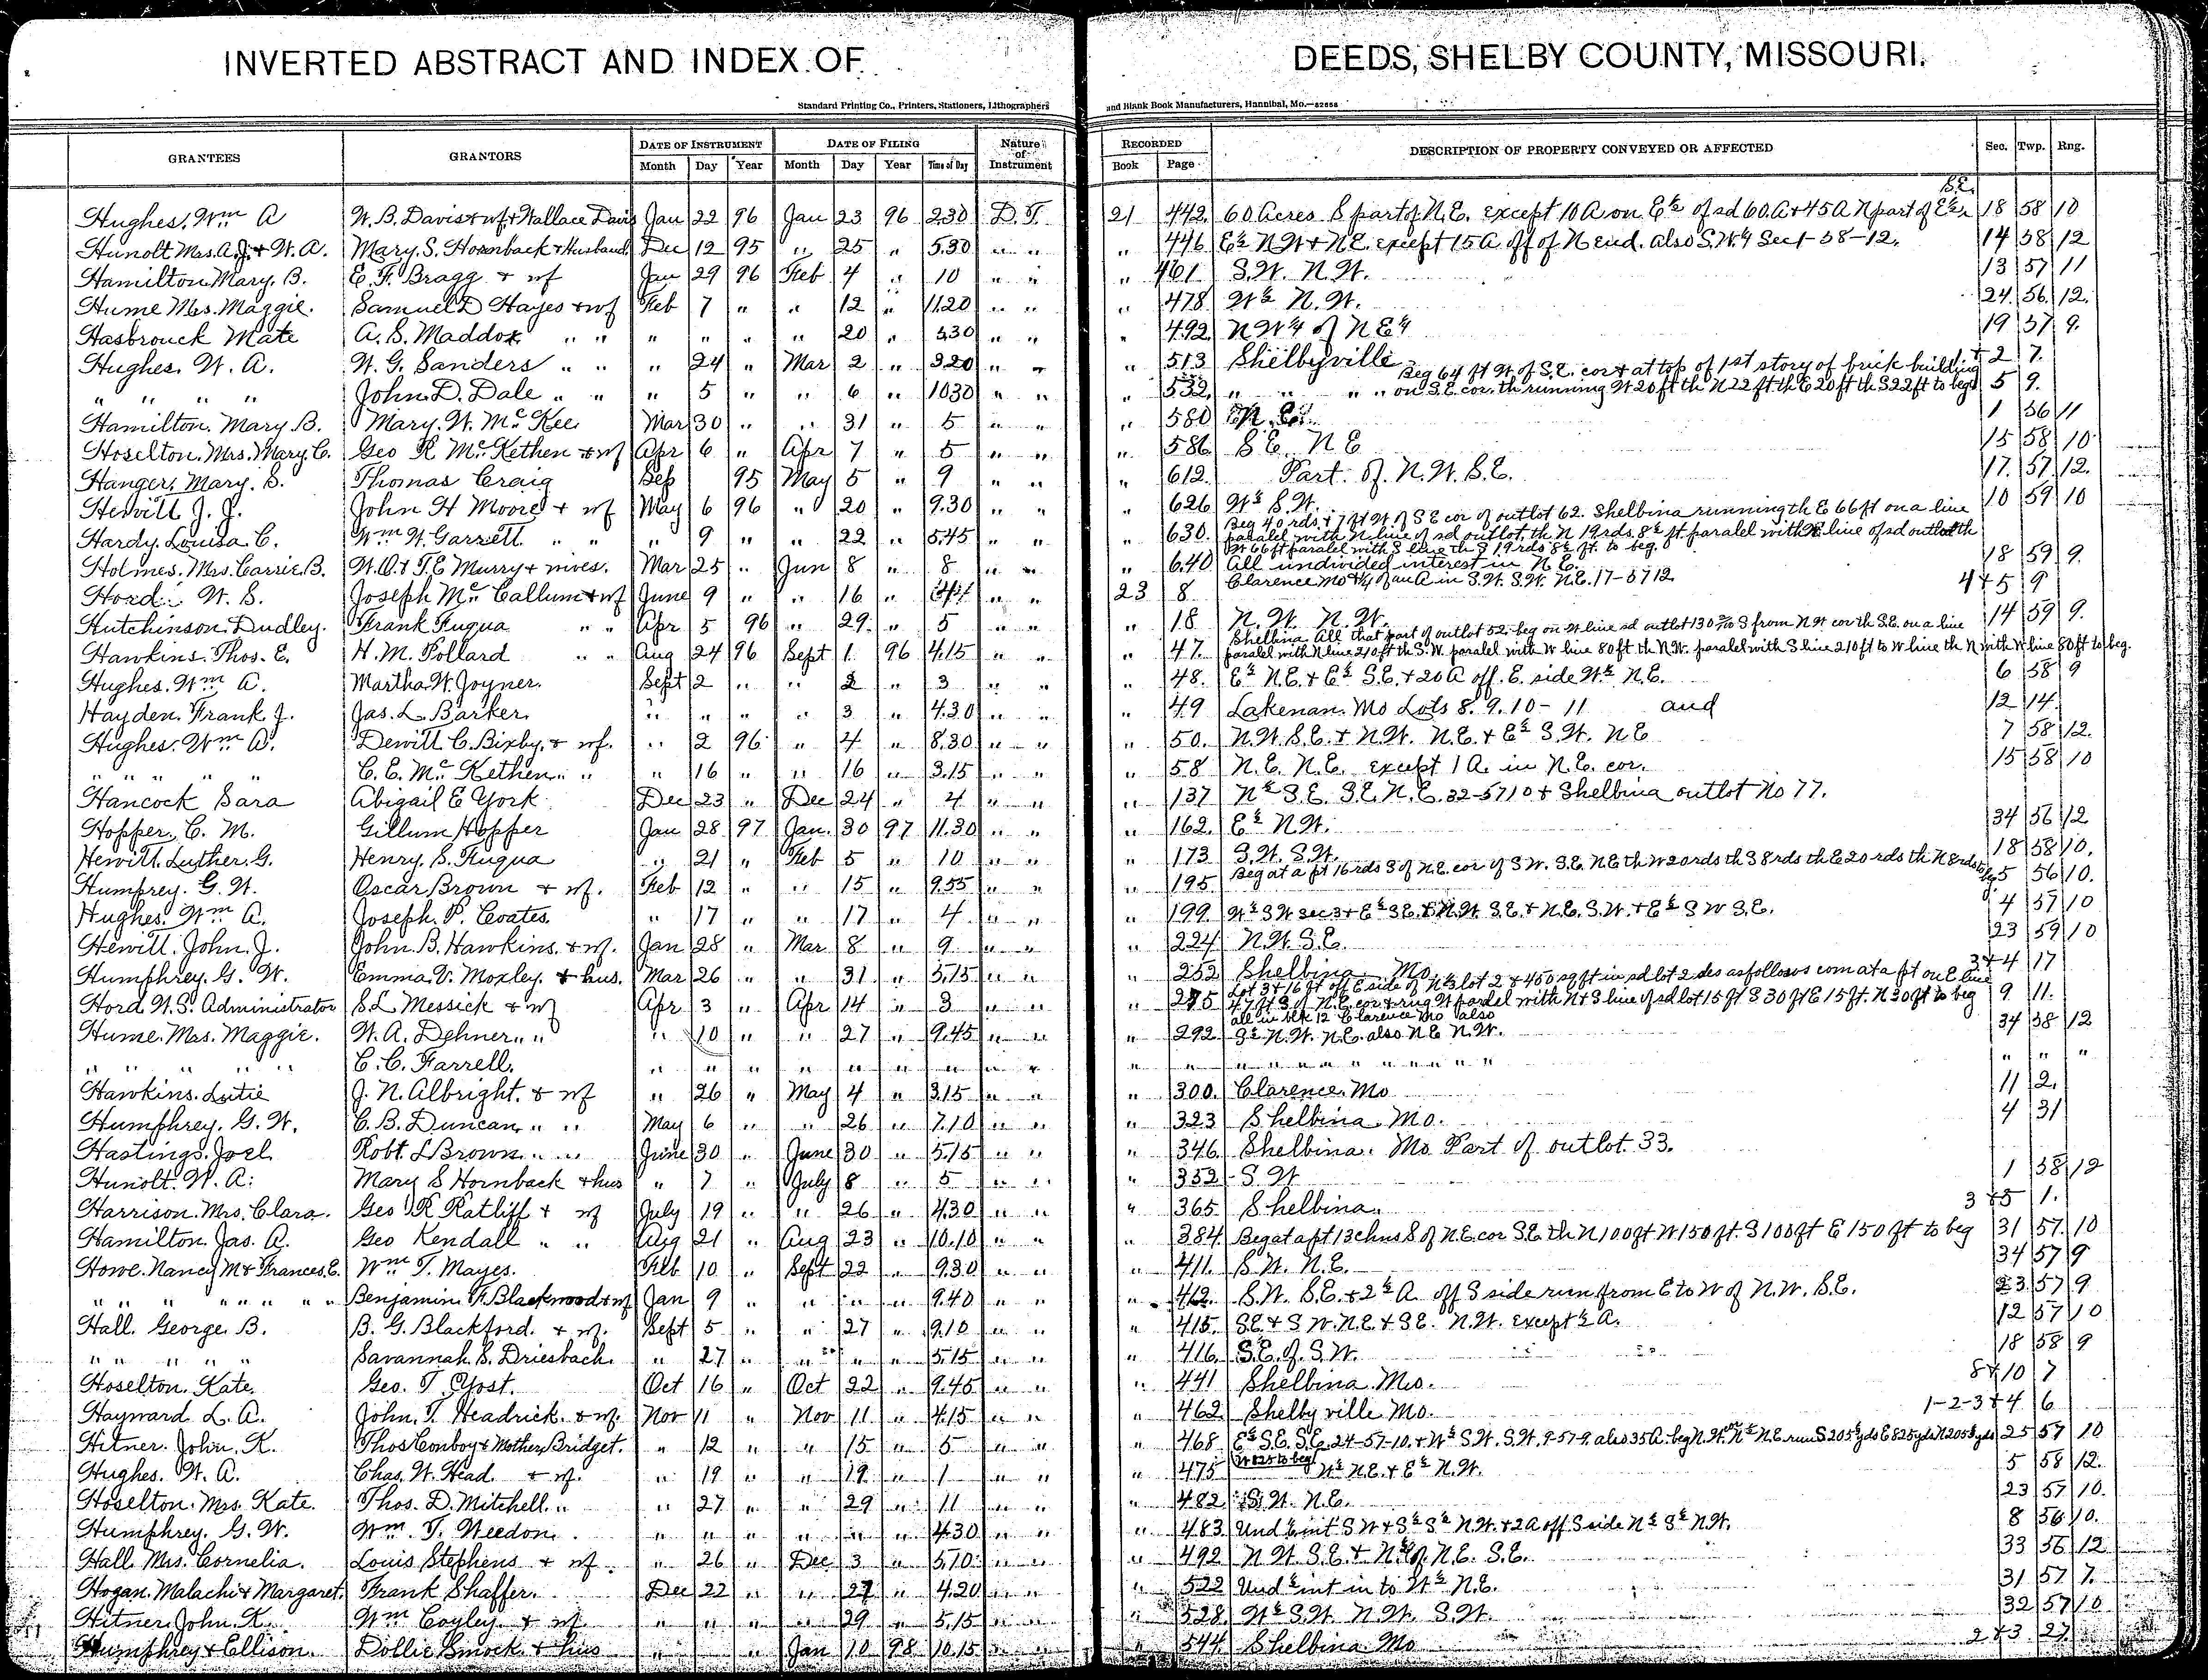 INVERTED ABSTRACT AND INDEX OF DEEDS, SHELBY COUNTY, MISSOURI.
Standard Printing Co., Printers, Stationers, Lithographers and Blank Book Manufacturers, Hannibal, Mo.—82658
GRANTEES GRANTORS DATE OF INSTRUMENT DATE OF FILING Nature of Instrument RECORDED DESCRIPTION OF PROPERTY CONVEYED OR AFFECTED Sec. Twp. Rng.
Month Day Year Month Day Year Time of Day Book Page
S.E.
Hughes, Wm A W. B. Davis & wf & Wallace Davis Jan 22 96 Jan 23 96 2.30 D.T. 21 442 60 Acres S part of N.E. except 10 A on E½ of sd 60 A & 45 A N part of E½ 18 58 10
Hunolt Mrs. A.J. & W.A. Mary S. Hornback & Husband Dec 12 95 " 25 " 5.30 " " " 446 E½ N W & N.E. except 15 A off of N end. also S.W.4 Sec 1-58-12. 14 58 12
Hamilton Mary. B. E. F. Bragg & wf Jan 29 96 Feb 4 " 10 " " " 461 S.W. N.W. 13 57 11
Hume Mrs. Maggie. Samuel D Hayes & wf Feb 7 " " 12 " 11.20 " " " 478 W½ N.W. 24 56 12.
Hasbrouck Mate A. S. Maddox " " " " " " 20 " 5.30 " " " 492 N W4 of N E4 19 57 9.
Hughes. W. A. W. G. Sanders " " " 24 " Mar 2 " 3.20 " " " 513 Shelbyville 1 & 2 7.
Beg 64 ft W of S.E. cor & at top of 1st story of brick building
" " " " John D. Dale " " " 5 " " 6 " 10.30 " " " 532 " " " " on S.E. cor. th running W 20 ft th N 22 ft th E 20 ft th S 22 ft to beg 5 9.
Hamilton. Mary B. Mary. W. Mc Kee Mar 30 " " 31 " 5 " " " 580 1 56 11
Hoselton. Mrs. Mary. C. Geo R McKethen & wf Apr 6 " Apr 7 " 5 " " " 586 S.E. N E 15 58 10
Hanger, Mary. S. Thomas Craig Sep 95 May 5 " 9 " " " 612 Part of N.W. S.E. 17. 57 12.
Hewitt J. J. John H Moore & wf May 6 96 " 20 " 9.30 " " " 626 W½ S.W. 10 59 10
Beg 40 rds & 7 ft W of S E cor of outlot 62. Shelbina running th E 66 ft on a line
Hardy. Louisa C. Wm W. Garrett " " " 9 " " 22 " 5.45 " " " 630 paralel with N line of sd outlot, th N 19 rds 8½ ft. paralel with line of sd outlot th
W 66 ft paralel with S line th S 19 rds 8½ ft. to beg.
Holmes. Mrs. Carrie. B. W.O. & T.E Murry & wives. Mar 25 " Jun 8 " 8 " " " 640 All undivided interest in N.E. 18 59 9.
Hord. W. S. Joseph Mc Callum & wf June 9 " " 16 " " " 23 8 Clarence Mo & ¼ of an A in S.W. S.W. N.E. 17-57 12 4 & 5 9
Hutchinson. Dudley. Frank Fuqua " " Apr 5 96 " 29. " 5 " " " 18 N. W. N. W. 14 59 9.
Shelbina All that part of outlot 52. beg on W line sd outlot 130 S from N W cor th S.E. on a line
Hawkins. Thos. E. H. M. Pollard " " Aug 24 96 Sept 1. 96 4.15 " " " 47. paralel with N line 210 ft th S.W. paralel with W line 80 ft th N.W. paralel with S line 210 ft to W line th N with W line 80 ft to beg.
Hughes. Wm A. Martha W. Joyner. Sept 2 " " 2 " 3 " " " 48. E½ N.E. & E½ S.E. & 20 A off. E. side W½ N.E. 6 58 9
Hayden. Frank. J. Jas. L. Barker. " " " " 3 " 4.30 " " " 49 Lakenan. Mo Lots 8. 9. 10 - 11 and 12 14
Hughes. Wm A. Dewitt C. Bixby. & wf. " 2 96 " 4 " 8.30 " " " 50. N.W. S.E. & N.W. N.E. & E½ S.W. N E 7 58 12.
" " " " " C. E. McKethen " " " 16 " " 16 " 3.15 " " " 58 N. E. N.E. except 1 A. in N.E. cor. 15 58 10
Hancock Sara Abigail E York Dec 23 " Dec 24 " 4 " " " 137 N½ S.E. S.E. N.E. 32-57 10 & Shelbina outlot No 77.
Hopper. C. M. Gillum Hopper Jan 28 97 Jan. 30 97 11.30 " " " 162. E½ N.W. 34 56 12
Hewitt. Luther. G. Henry. S. Fuqua " 21 " Feb 5 " 10 " " " 173 S.W. S.W. 18 58 10.
Humfrey. G. W. Oscar Brown & wf. Feb 12 " " 15 " 9.55 " " " 195 Beg at a pt 16 rds S of N.E. cor of S W. S.E. N E th W 20 rds th S 8 rds th E 20 rds th N 8 rds to beg. 5 56 10.
Hughes. Wm A. Joseph. P. Coates " 17 " " 17 " 4 " " " 199. W½ S W sec 3 & E½ S.E. & N.W. S.E. & N.E. S.W. & E½ S W S.E. 4 57 10
Hewitt. John. J. John B. Hawkins. & wf. Jan 28 " Mar 8 " 9 " " " 224 N.W. S.E. 23 59 10
Humphrey. G. W. Emma. V. Moxley. & hus. Mar 26 " " 31 " 5.15 " " " 252 Shelbina Mo 3 & 4 17
Lot 3 & 16 ft off E side of N½ lot 2 & 450 sq ft in sd lot 2 des as follows com at a pt on E line
Hord W. S. Administrator S. L. Messick & wf Apr 3 " Apr 14 " 3 " " " 275 47 ft S of N.E. cor & rug W paralel with N & S line of sd lot 15 ft S 30 ft E 15 ft. N 30 ft to beg 9 11.
all in blk 12 Clarence Mo also
Hume. Mrs. Maggie. W. A. Dehner " " " 10 " " 27 " 9.45 " " " 292 S½ N.W. N.E. also N E N.W. 34 58 12
" " " " " C. C. Farrell. " " " " " " " " " " " " " " " " " " " " " "
Hawkins. Lutie J. N. Albright. & wf " 26 " May 4 " 3.15 " " " 300. Clarence. Mo 11 2.
Humphrey. G. W. C. B. Duncan " " May 6 " " 26 " 7.10 " " " 323 Shelbina. Mo. 4 31
Hastings. Joel Robt. L Brown " " June 30 " June 30 " 5.15 " " " 346 Shelbina. Mo Part of outlot. 33.
Hunolt. W. A. Mary S Hornback & hus " 7 " July 8 " 5 " " " 352 S. W 1 58 12
Harrison. Mrs. Clara. Geo R Ratliff & wf July 19 " " 26 " 4.30 " " " 365 Shelbina. 3 & 5 1.
Hamilton. Jas. A. Geo Kendall " " Aug 21 " Aug 23 " 10.10 " " " 384 Beg at a pt 13 chns S of N.E. cor S.E. th N 100 ft W 150 ft. S 100 ft E 150 ft to beg 31 57. 10
Howe. Nancy M & Frances. E. Wm T. Mayes. Feb 10 " Sept 22 " 9.30 " " " 411. S.W. N.E. 34 57 9
" " " " " " " Benjamin F. Blackwood & wf Jan 9 " " " " 9.40 " " " 412. S.W. S.E. & 2½ A. off S side run from E to W of N.W. S.E. 23 57 9
Hall. George. B. B. G. Blackford. & wf. Sept 5 " " 27 " 9.10 " " " 415. S.E. & S W. N.E. & S E. N.W. except ½ A. 12 57 10
" " " " " Savannah. S. Driesbach. " 27 " " " " 5.15 " " " 416. S.E. of S.W. 18 58 9
Hoselton. Kate. Geo. T. Yost. Oct 16 " Oct 22 " 9.45 " " " 441 Shelbina. Mo. 8 & 10 7
Hayward L. A. John. T. Headrick. & wf. Nov 11 " Nov 11 " 4.15 " " " 462 Shelbyville Mo. 1-2-3 & 4 6
Hitner. John. K. Thos Conboy & Mother Bridget. " 12 " " 15 " 5 " " " 468 E½ S.E. S.E. 24-57-10. & W½ S.W. S.W. 9-57-9. also 35 A. beg N.W. N½ N.E. run S 205½ yds E 825 yds N 205½ yds 25 57 10
W 825 to beg
Hughes. W. A. Chas. W. Head. & wf. " 19 " " 19 " 1 " " " 475 W½ N.E. & E½ N.W. 5 58 12.
Hoselton. Mrs. Kate. Thos. D. Mitchell " " 27 " " 29 " 11 " " " 482 S.W. N.E. 23 57 10.
Humphrey. G. W. Wm. T. Weedon. " " " " " " 4.30 " " " 483 Und ½ int S W & S½ S½ N.W. & 2 A off S side N½ S½ N.W. 8 56 10.
Hall Mrs. Cornelia. Louis Stephens & wf. " 26 " Dec 3 " 5.10 " " " 492 N W. S.E. & N½ of N.E. S.E. 33 56 12
Hogan. Malachi & Margaret. Frank Shaffer. Dec 22 " " 27 " 4.20 " " " 522 Und ½ int in to W½ N.E. 31 57 7.
Hitner. John. K. Wm Coyley. & wf " " " " 29 " 5.15 " " " 528. W½ S.W. N.W. S.W. 32 57 10
Humphrey & Ellison. Dollie Smock. & hus " " Jan 10 98 10.15 " " " 544 Shelbina. Mo 2 & 3. 27